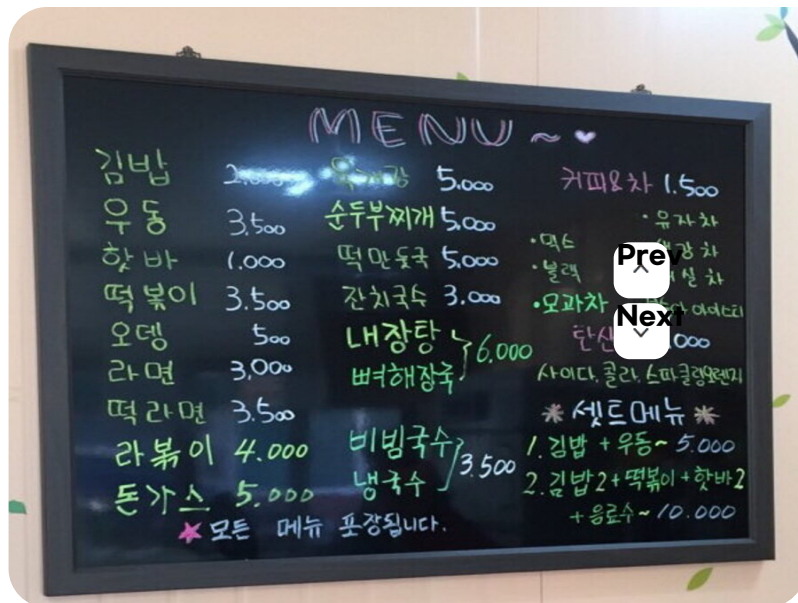 MENU ~
김밥
우동 3,500
핫바 1,000
떡볶이 3,500
오뎅 500
라면 3,000
떡라면 3,500
라볶이 4,000
돈가스 5,000
5,000
순두부찌개 5,000
떡만둣국 5,000
잔치국수 3,000
내장탕
뼈해장국 } 6,000
비빔국수
냉국수 } 3,500
커피&차 1,500
·믹스
·블랙
·모과차
·유자차
차
실차
아이스티
탄산 000
사이다, 콜라, 스파클링오렌지
* 셋트메뉴 *
1. 김밥 + 우동 ~ 5,000
2. 김밥2 + 떡볶이 + 핫바2
+ 음료수 ~ 10,000
★ 모든 메뉴 포장됩니다.
Prev
Next